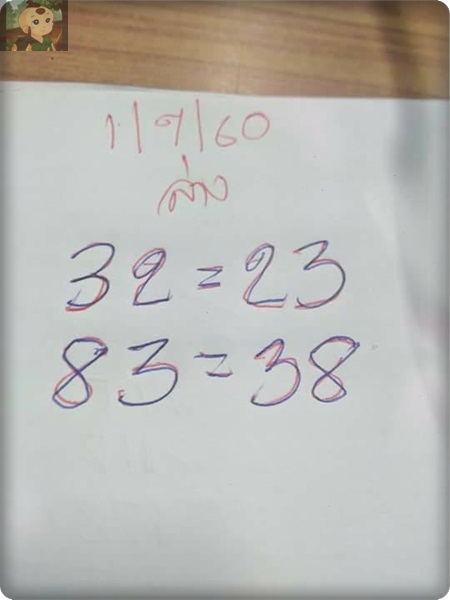 1/9/60
ล่าง
32=23
83=38